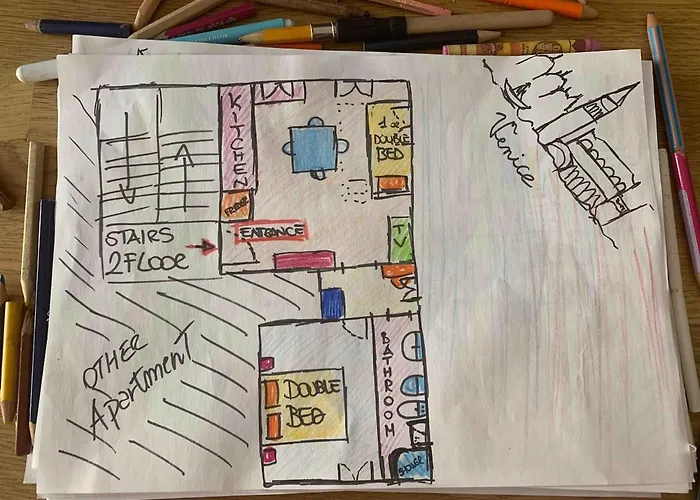 KITCHEN
FRIDGE
STAIRS
2 FLOOR
ENTRANCE
DOUBLE
BED
TV
Venice
OTHER
Apartment
DOUBLE
BED
BATHROOM
SHOWER